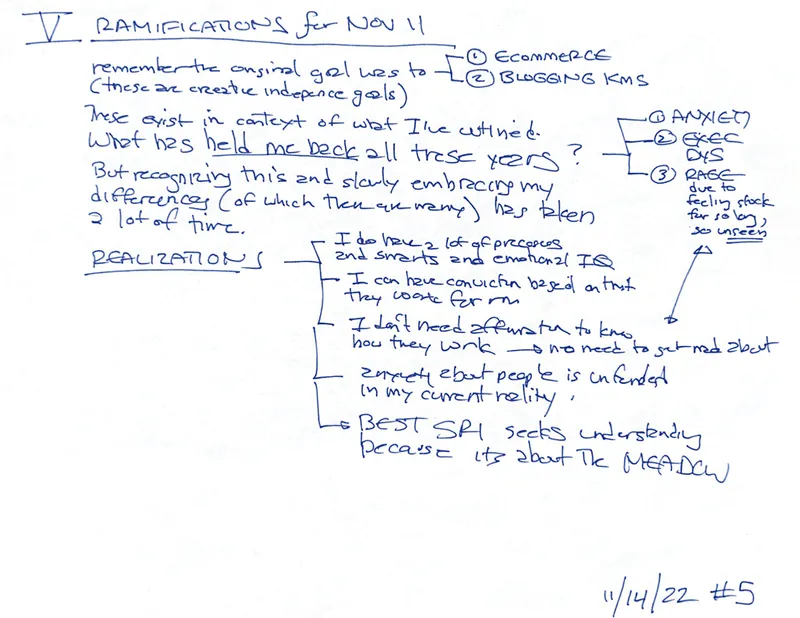 V RAMIFICATIONS for NOV 11
remember the original goal was to
① ECOMMERCE
② BLOGGING KMS
(these are creative indepence goals)
These exist in context of what I've outlined.
What has held me back all these years?
① ANXIETY
② EXEC
DYS
③ RAGE
due to
feeling stuck
for so long,
so unseen
But recognizing this and slowly embracing my
differences (of which there are many) has taken
a lot of time.
REALIZATIONS
I do have a lot of processes
and smarts and emotional IQ
I can have conviction based on that
they work for me
I don't need affirmation to know
how they work → no need to get mad about
anxiety about people is unfounded
in my current reality.
BEST SRI seeks understanding
because its about The MEADOW
11/14/22 #5